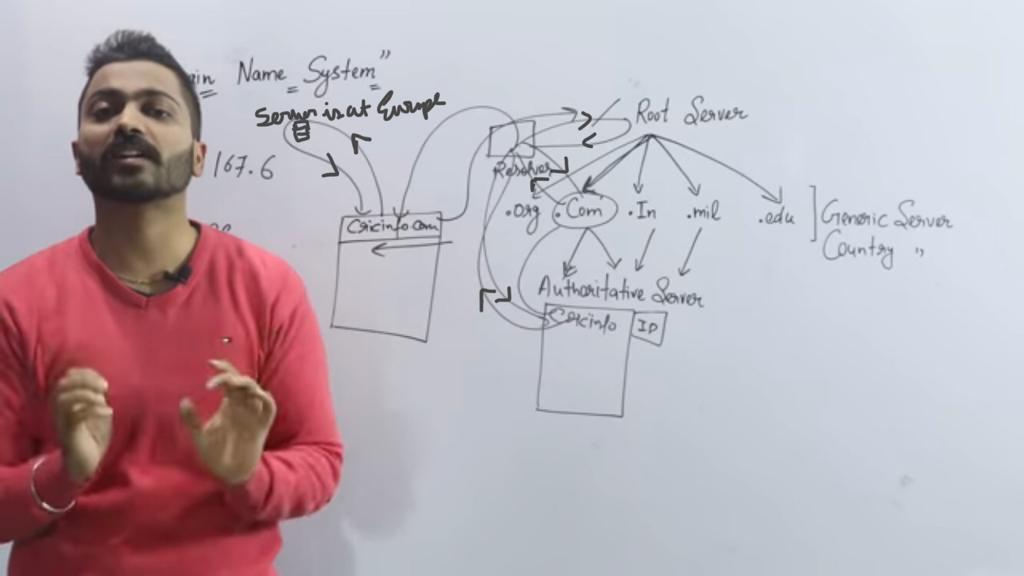 Name System"
Server is at Europe
167.6
Root Server
Resolver
Cricinfo com
.org .Com .In .mil .edu
Generic Server
Country "
Authoritative Server
Cricinfo IP